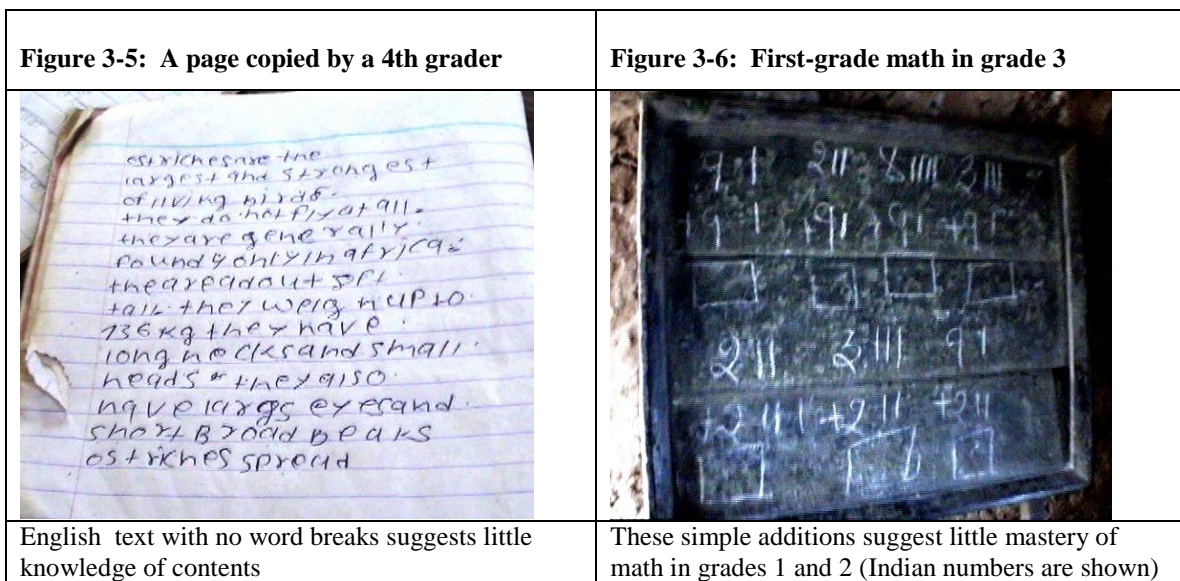 Figure 3-5: A page copied by a 4th grader
Figure 3-6: First-grade math in grade 3
ostrichesare the
largest and strongest
of living birds.
they do not fly at all.
theyare generally.
found only in africa
theareabout
tall. they weig hupto.
136 kg they have.
long necksand small.
heads they also.
have largs eyesand.
short Broad Beaks
ostriches spread
१ । २॥ ४॥॥ ३॥।
+१ । +१। +१। +१।
२॥ ३॥। १।
+२॥ +२॥ +२॥
English text with no word breaks suggests little
knowledge of contents
These simple additions suggest little mastery of
math in grades 1 and 2 (Indian numbers are shown)